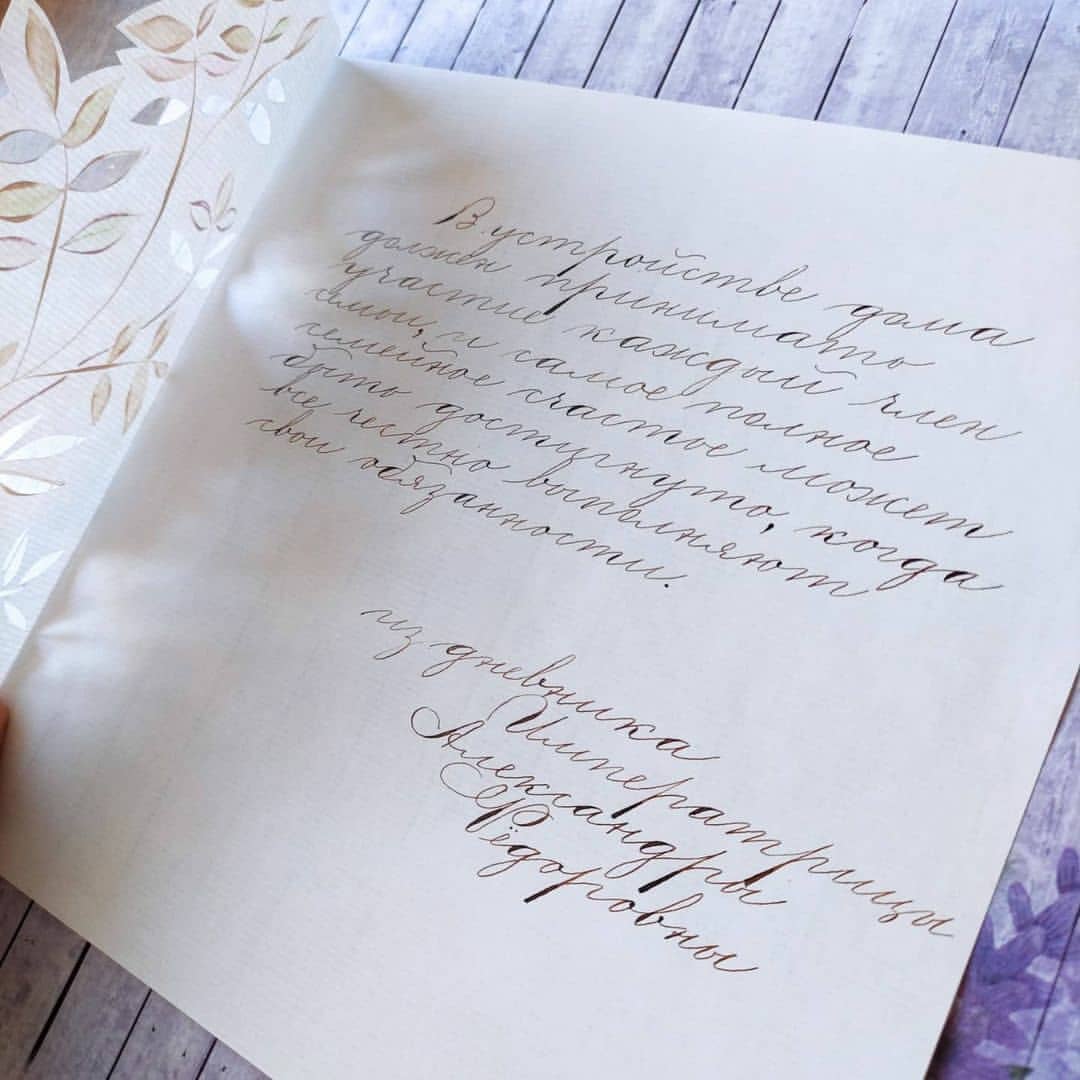 В устройстве дома
должен принимать
участие каждый член
семьи, и самое полное
семейное счастье может
быть достигнуто, когда
все честно выполняют
свои обязанности.
из дневника
Императрицы
Александры
Фёдоровны